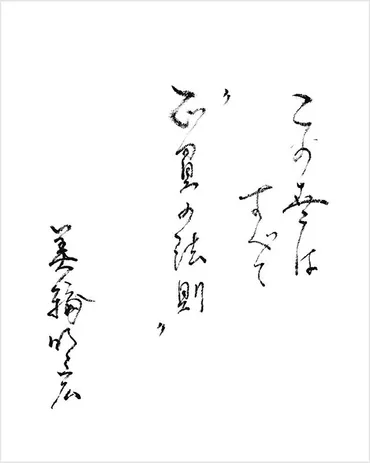 この世は
すべて
〝正負の法則〟
美輪明宏